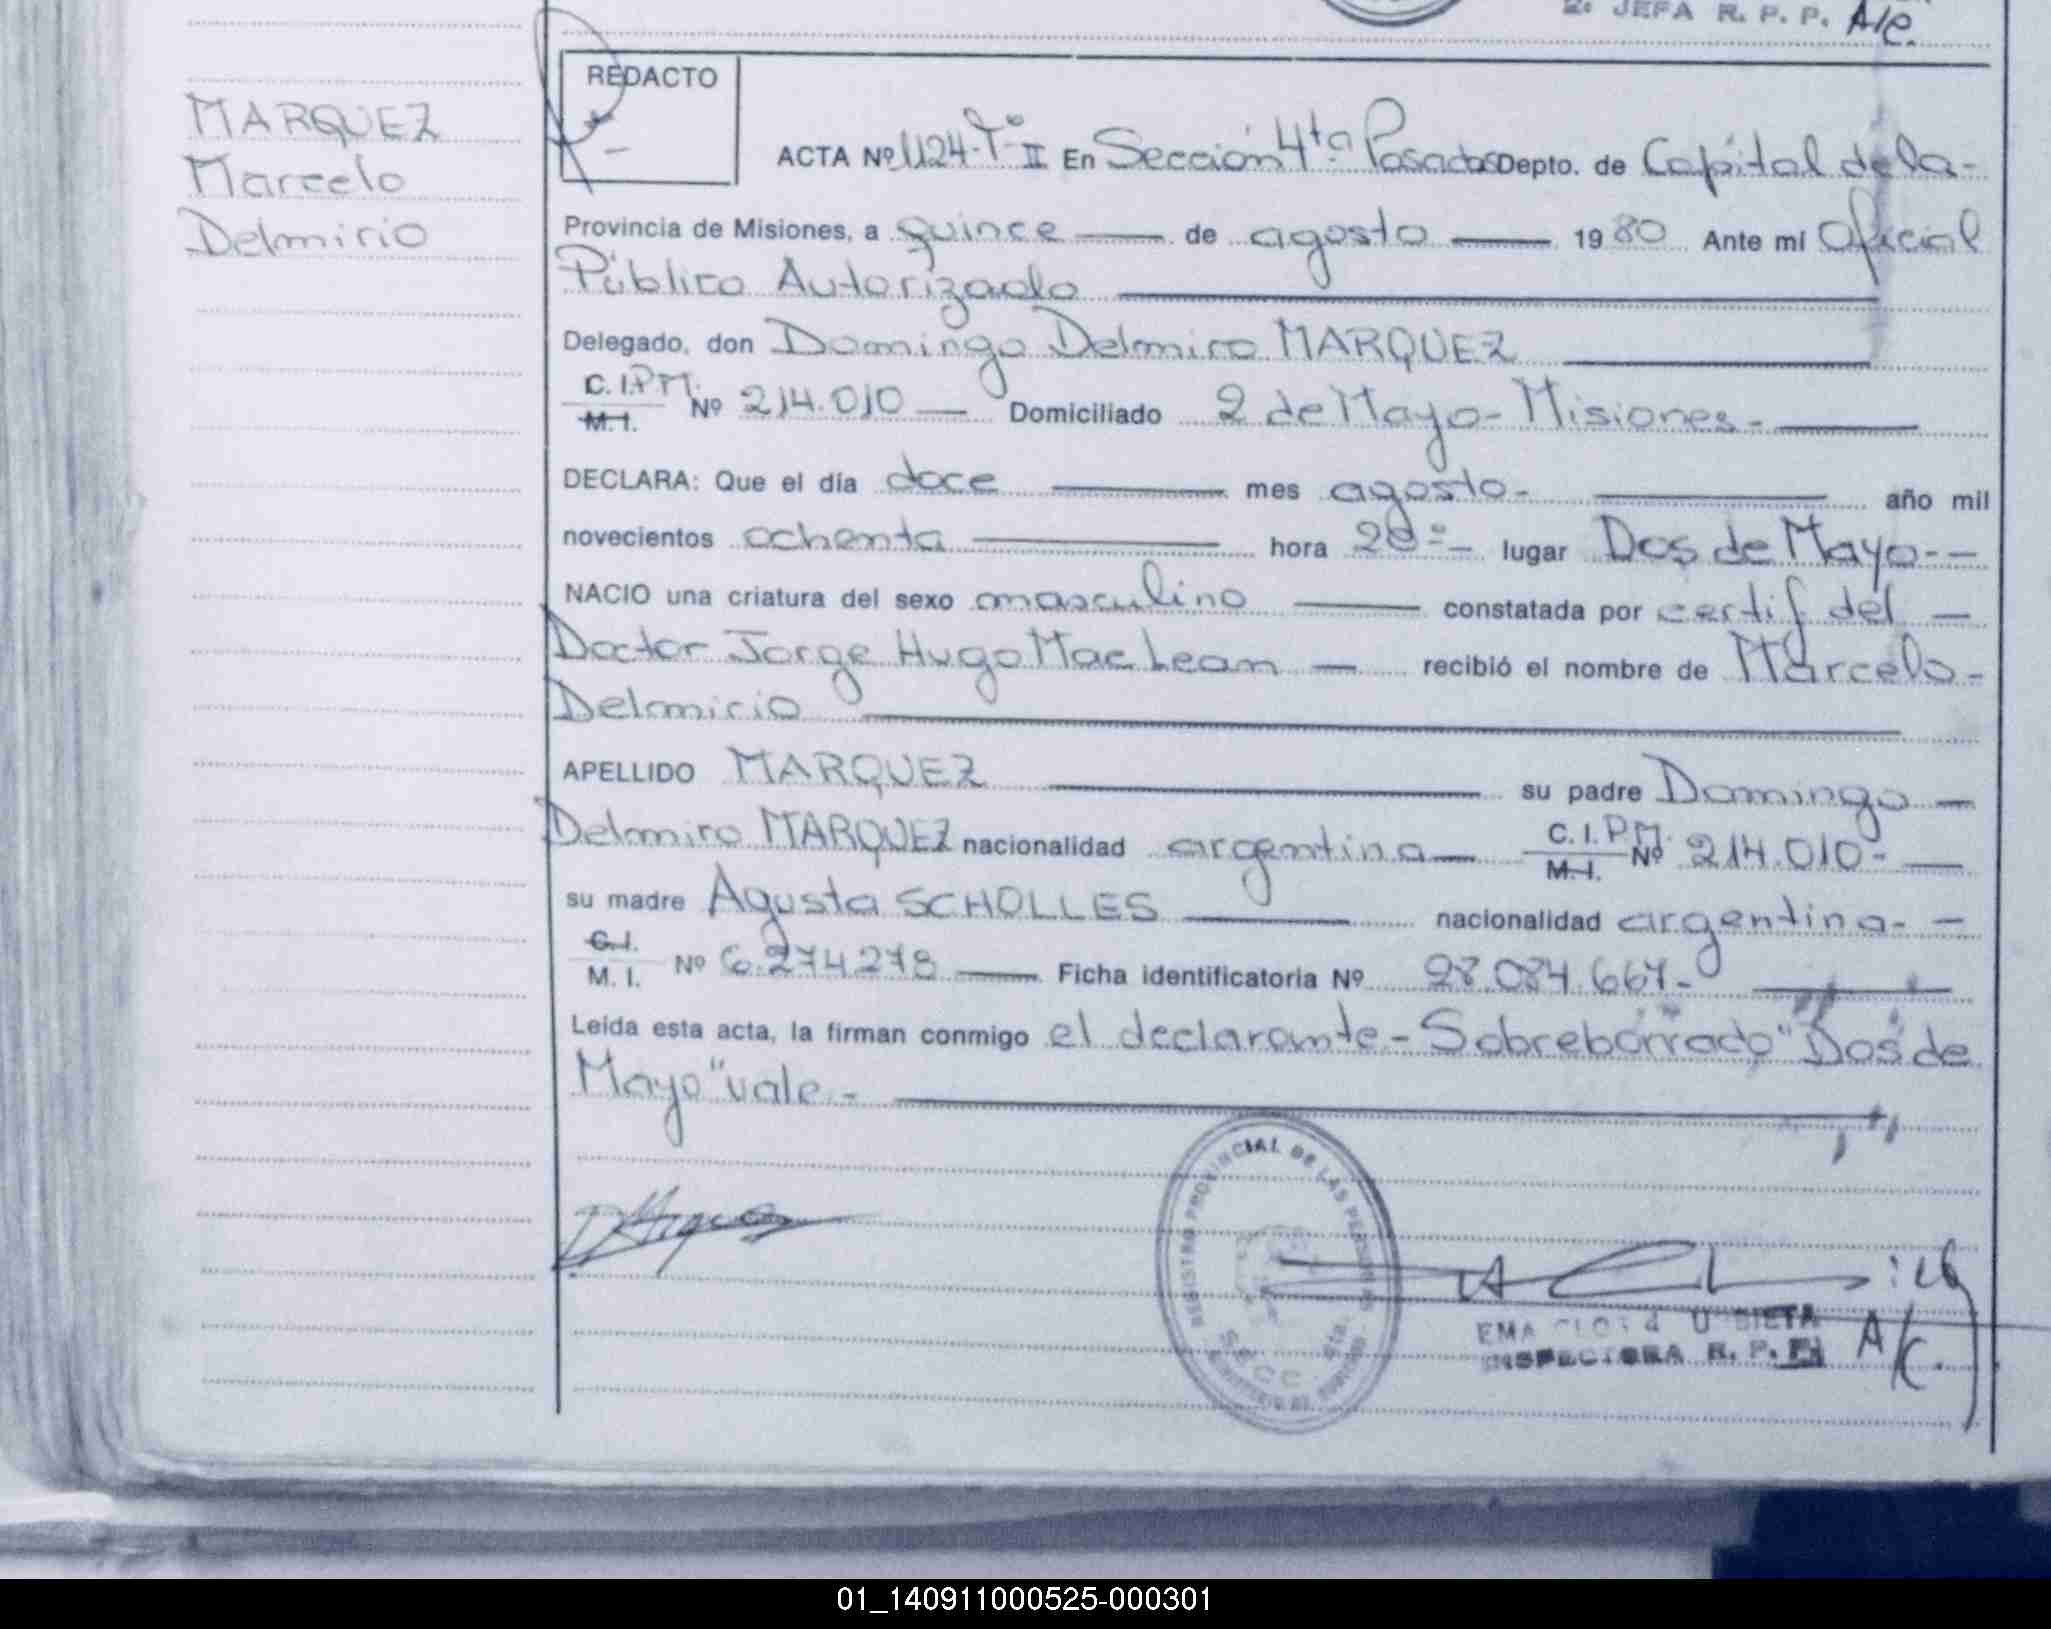 2º JEFA R. P. P. A/C.
REDACTO
MARQUEZ
Marcelo
Delmirio
ACTA Nº 1124-Tº II En Sección 4ta Posadas Depto. de Capital de la-
Provincia de Misiones, a quince — de agosto — 1980 Ante mi Oficial
Público Autorizado —
Delegado, don Domingo Delmiro MARQUEZ —
C. I.P.M.
M. I. Nº 214.010 — Domiciliado 2 de Mayo - Misiones - —
DECLARA: Que el día doce — mes agosto- — año mil
novecientos ochenta — hora lugar Dos de Mayo--
NACIO una criatura del sexo masculino — constatada por certif del —
Doctor Jorge Hugo Mac Lean — recibió el nombre de Marcelo-
Delmirio —
APELLIDO MARQUEZ — su padre Domingo —
Delmiro MARQUEZ nacionalidad argentina — C. I.P.M.
M. I. Nº 214.010- —
su madre Agusta SCHOLLES — nacionalidad argentina- -
C. I.
M. I. Nº 6.274.278 — Ficha identificatoria Nº 28.084.667- —
Leída esta acta, la firman conmigo el declarante - Sobreborrado "Dos de
Mayo" vale.- —
REGISTRO PROVINCIAL DE LAS PERSONAS
SECC. 4ta.
INSPECTORA R. P. P. A/C.
01_140911000525-000301